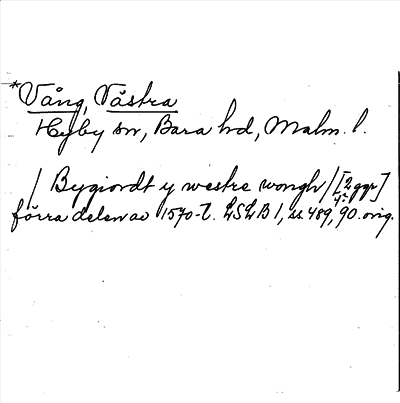 *Vång, Västra
Hyby sn, Bara hd, Malm. l.
/ Bygiordt y westre wongh / [2 ggr]
4:o
förra delen av 1570-t. LSLB 1, ss. 489, 90. orig.